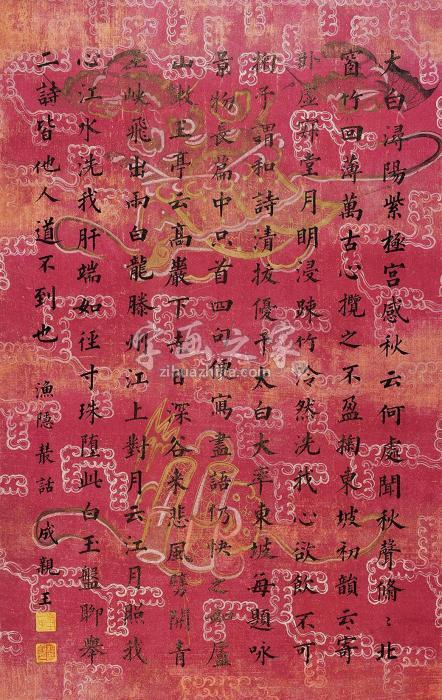 太白潯陽紫極宮感秋云何處聞秋聲翛〻北
窗竹回薄萬古心攬之不盈掬東坡初韻云寄
卧虛寂堂月明浸疎竹泠然洗我心欲飲不可
相予謂和詩清拔優于太白大率東坡每題咏
景物長篇中只首四句便寫盡語仿快之如廬
山 上亭云高巖下赤日深谷來悲風劈開青
玉峽飛出兩白龍滕州江上對月云江月照我
心江水洗我肝端如徑寸珠堕此白玉盤聊舉
二詩皆他人道不到也
漁隱叢話 成親王
字画之家
zihuazhijia.com